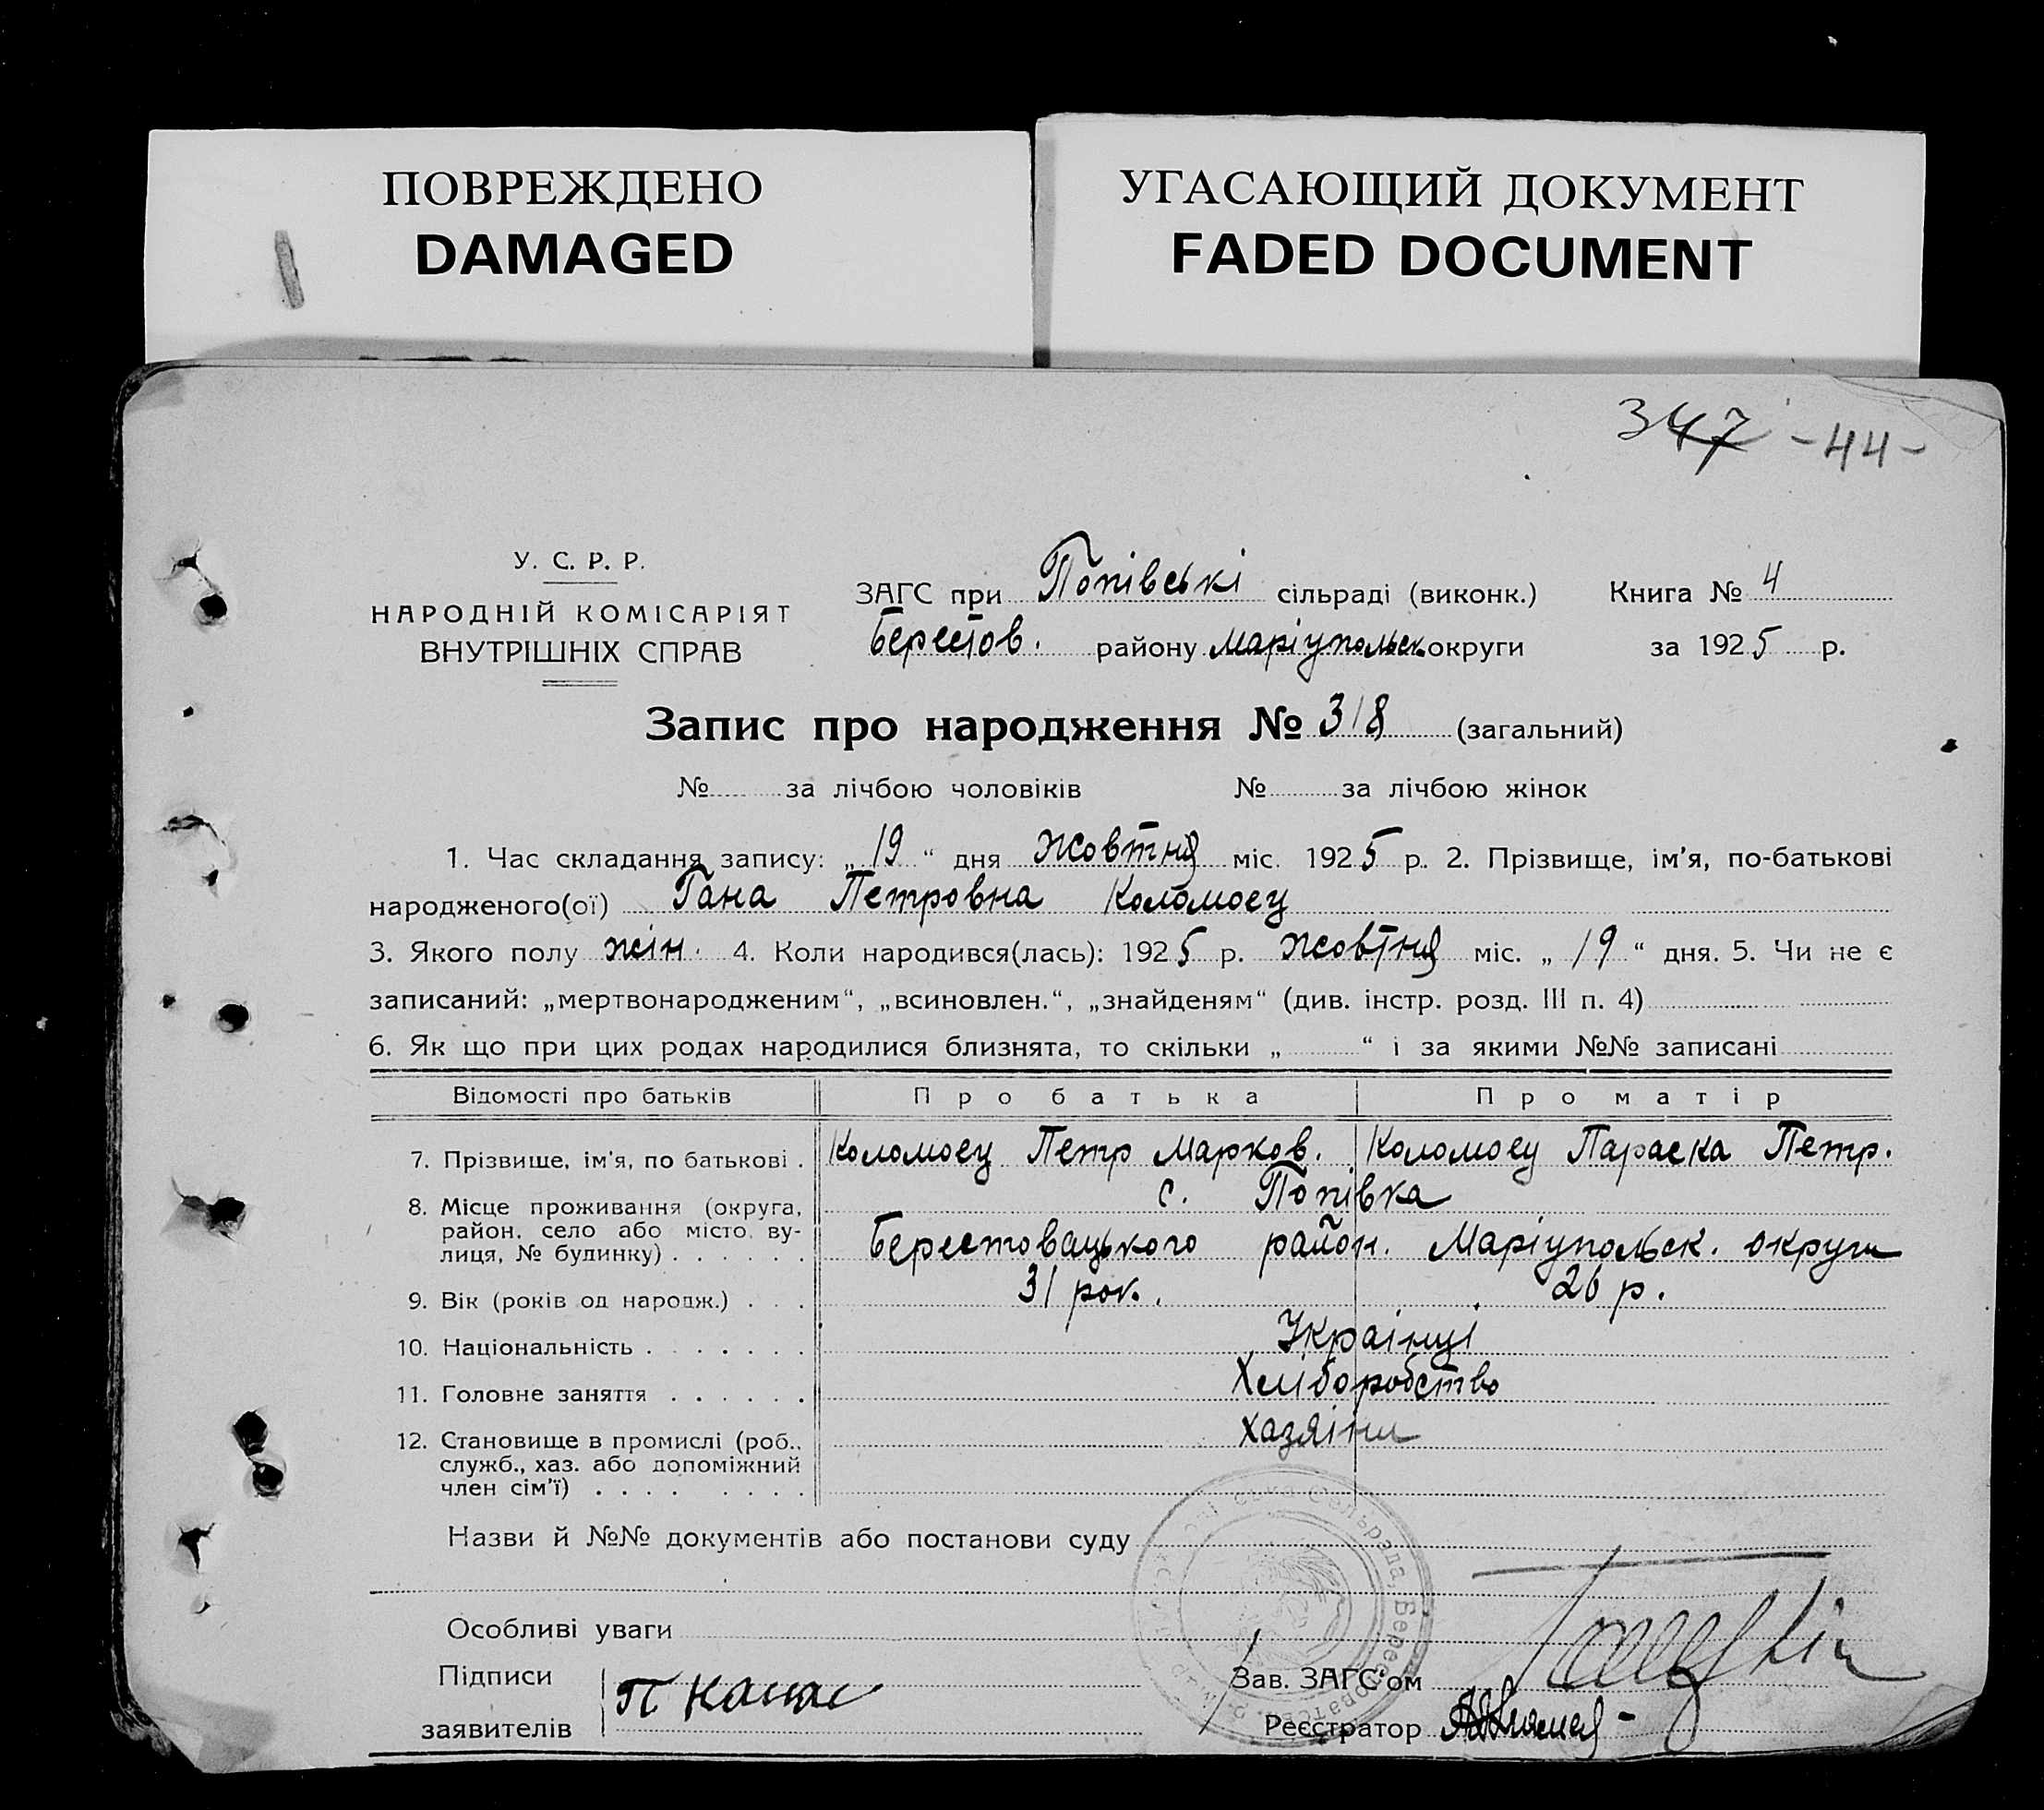 ПОВРЕЖДЕНО
DAMAGED
УГАСАЮЩИЙ ДОКУМЕНТ
FADED DOCUMENT
347 -44-
У. С. Р. Р.
НАРОДНІЙ КОМІСАРІЯТ
ВНУТРІШНІХ СПРАВ
ЗАГС при Попівські сільраді (виконк.) Книга № 4
Берестов. району Маріупольск. округи за 1925 р.
Запис про народження № 318 (загальний)
№ за лічбою чоловіків № за лічбою жінок
1. Час складання запису: „19“ дня жовтня міс. 1925 р. 2. Прізвище, ім'я, по-батькові
народженого(ої) Гана Петровна Коломоец
3. Якого полу жін. 4. Коли народився(лась): 1925 р. жовтня міс. „19“ дня. 5. Чи не є
записаний: „мертвонародженим“, „всиновлен.“, „знайденям“ (див. інстр. розд. III п. 4)
6. Як що при цих родах народилися близнята, то скільки „ “ і за якими №№ записані
Відомості про батьків Про батька Про матір
7. Прізвище, ім'я, по батькові . Коломоец Петр Марков. Коломоец Параска Петр.
8. Місце проживання (округа, с. Попівка
район, село або місто, ву-
лиця, № будинку) . . . . . . Берестовацького район. Маріупольск. округи
9. Вік (років од народж.) . . . 31 рок. 26 р.
10. Національність . . . . . . . Українці
11. Головне заняття . . . . . . Хліборобство
12. Становище в промислі (роб., хазяіни
служб., хаз. або допоміжний
член сім'ї) . . . . . . . .
Назви й №№ документів або постанови суду
Особливі уваги
Підписи
заявителів
Зав. ЗАГС'ом
Реєстратор